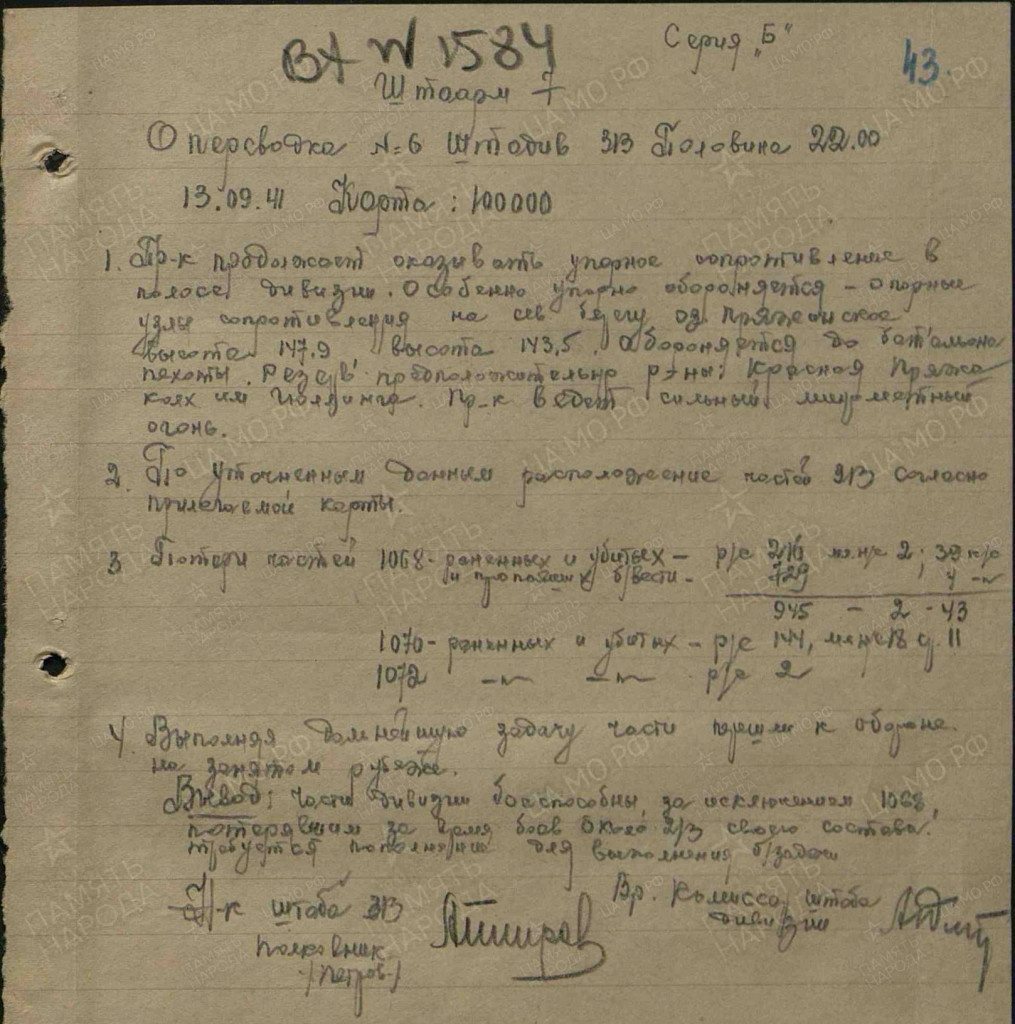 Серия „Б"
ВА № 1584
43.
Штаарм 7
Оперсводка №6 Штадив 313 Половина 22.00
13.09.41 Карта: 100000
1. Пр-к продолжает оказывать упорное сопротивление в
полосе дивизии. Особенно упорно обороняется – опорные
узлы сопротивления на сев берегу оз Пряжинское
высота 147.9, высота 143,5. Обороняется до батальона
пехоты. Резерв предположительно р-ны: Красная Пряжа
колх им Гюллинга. Пр-к ведет сильный минометный
огонь.
2. По уточненным данным расположение частей 313 согласно
прилагаемой карты.
3 Потери частей 1068 - раненных и убитых – р/с 216 мл н/с 2; 39 к/с
и пропавших б/вести - 729 4 -"-
945 – 2 - 43
1070 - раненных и убитых – р/с 144, мл н/с 18 11
1072 -"- -"- р/с 2
4. Выполняя дальнейшую задачу части перешли к обороне
на занятом рубеже.
Вывод: части дивизии боеспособны, за исключением 1068,
потерявшим за время боев около 2/3 своего состава.
требуется пополнение для выполнения б/задачи
Н-к штаба 313
Полковник
(Петров)
Вр. Комиссар штаба
дивизии